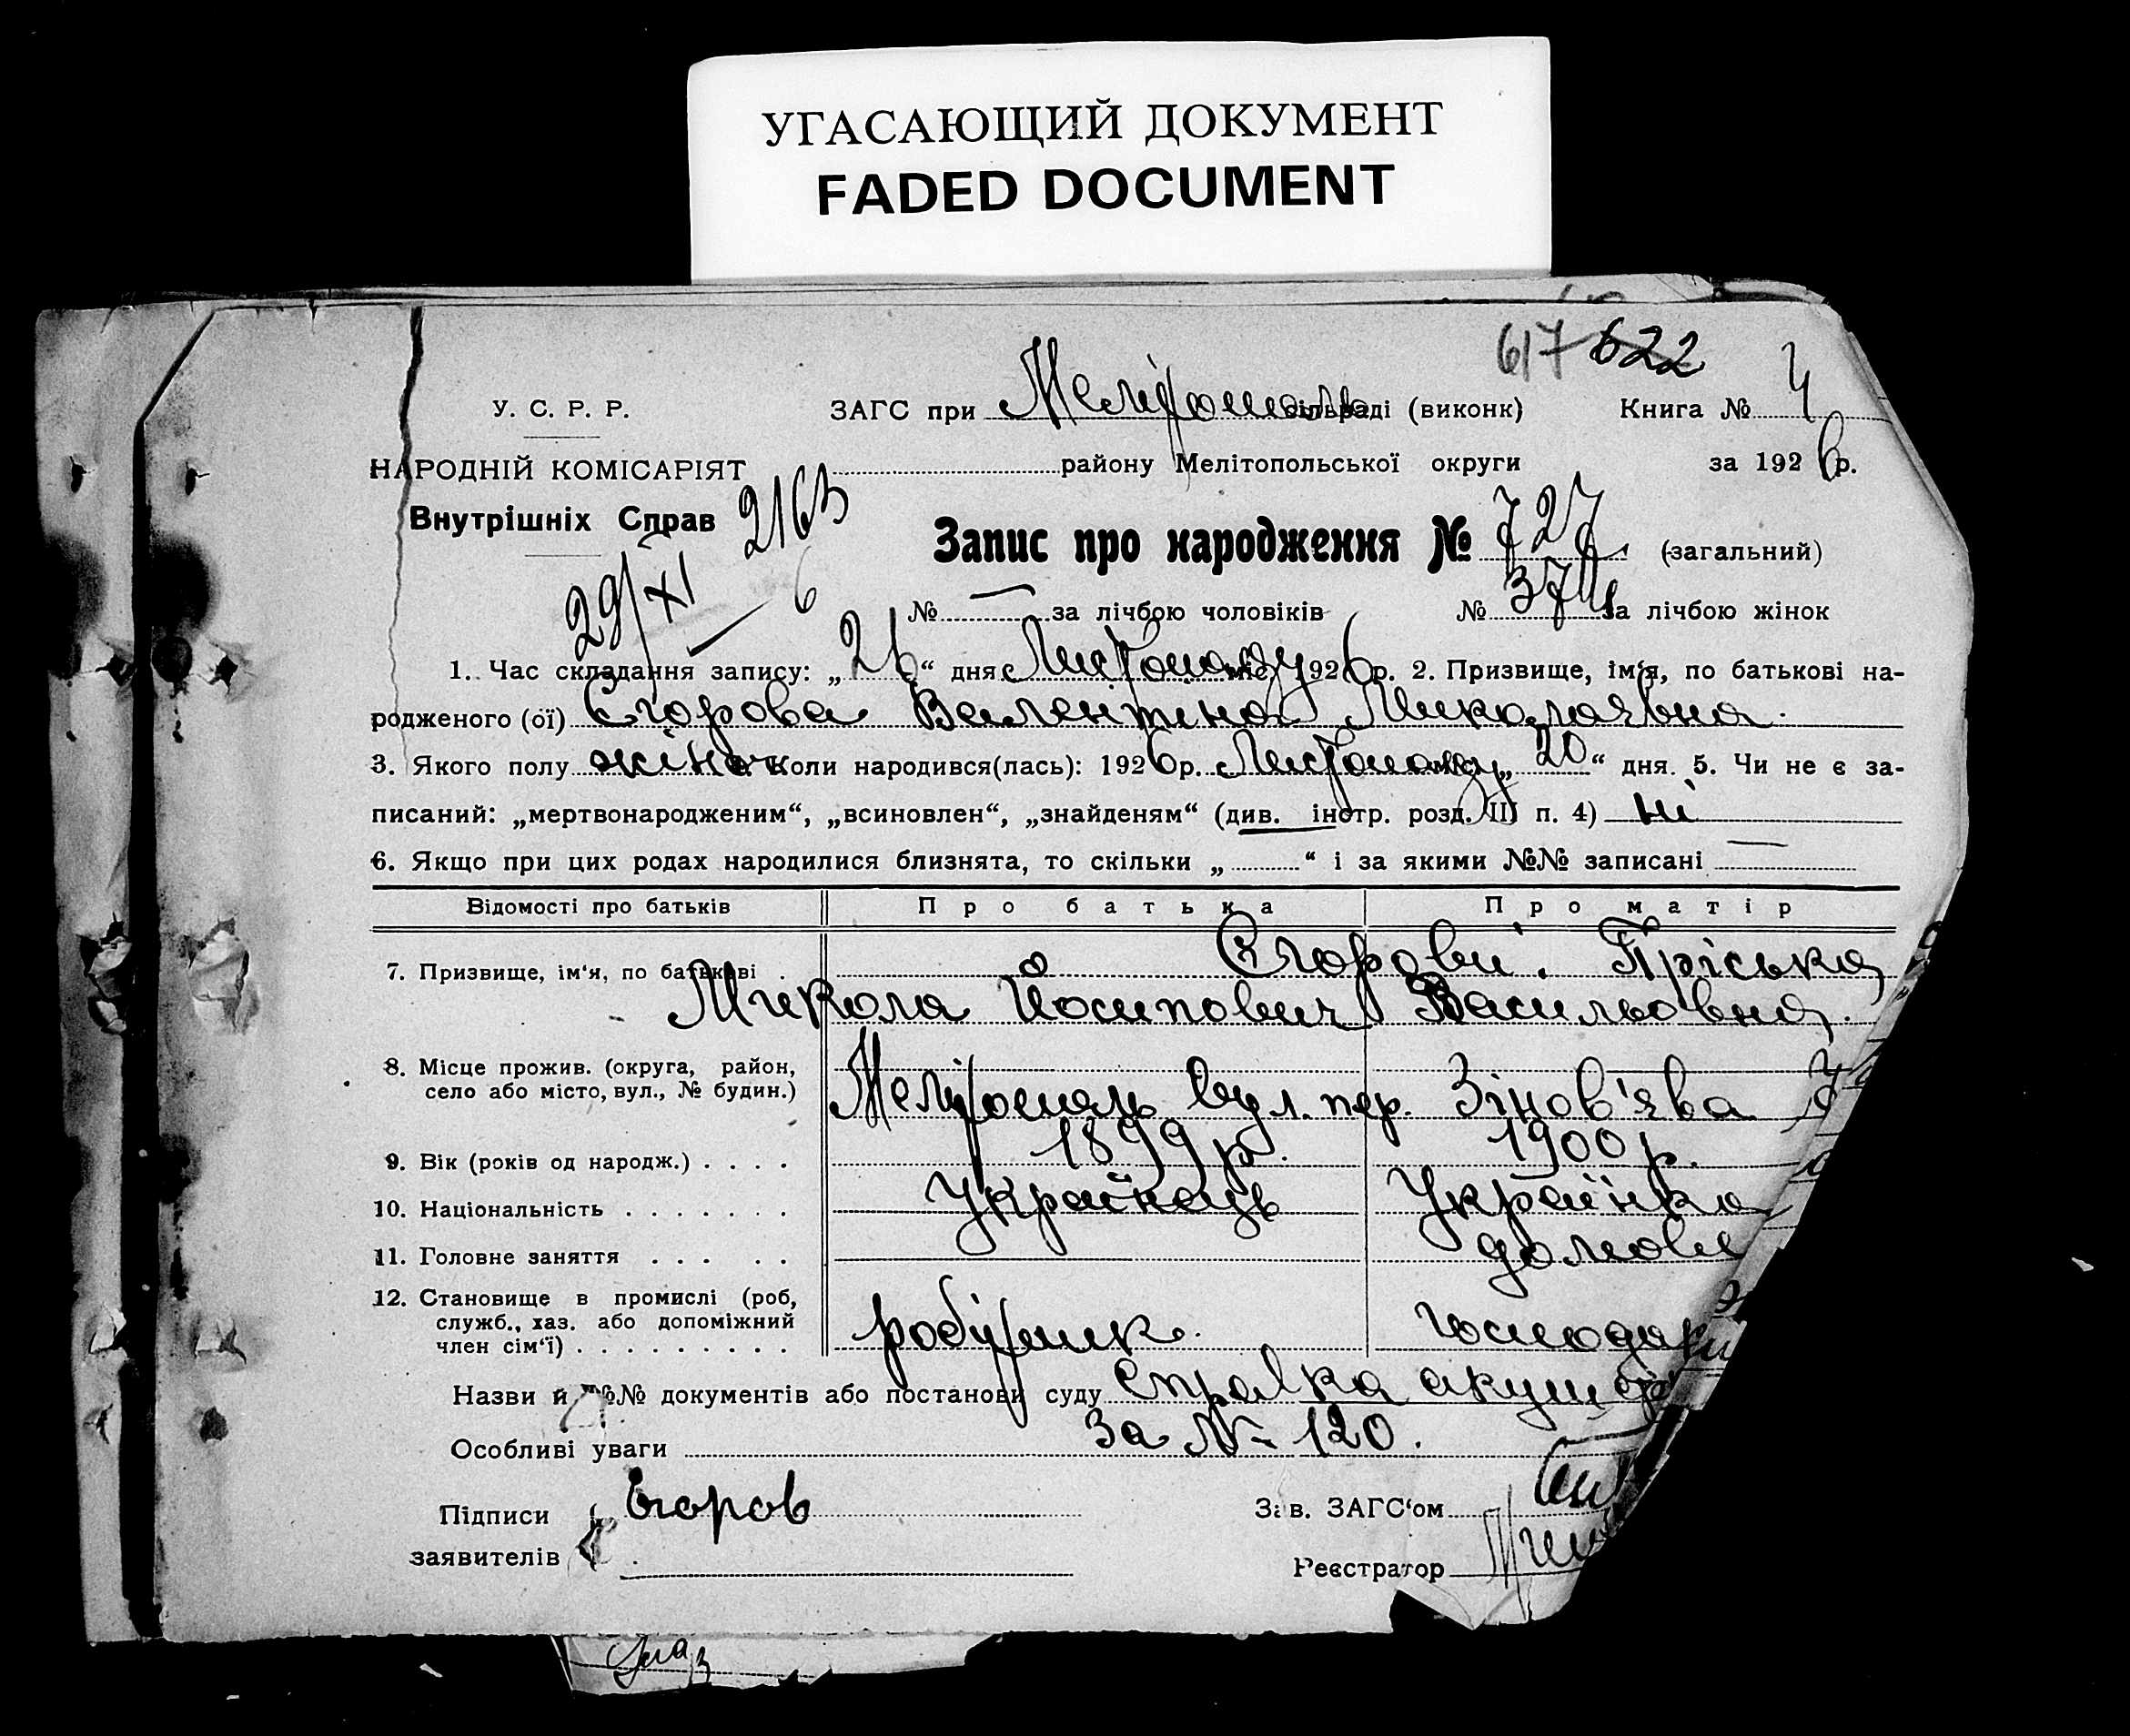 УГАСАЮЩИЙ ДОКУМЕНТ
FADED DOCUMENT
617 622
У. С. Р. Р. ЗАГС при Мелітополь сільраді (виконк) Книга № 4
НАРОДНІЙ КОМІСАРІЯТ району Мелітопольської округи за 1926 р.
Внутрішніх Справ 2163
Запис про народження № 727 (загальний)
29/XI 6
№ — за лічбою чоловіків № 374 за лічбою жінок
1. Час складання запису: „26“ дня Листопаду міс. 1926 р. 2. Призвище, ім'я, по батькові на-
родженого (ої) Єгорова Валентіна Миколаївна.
3. Якого полу жіноч. Коли народився(лась): 1926 р. Листопаду „20“ дня. 5. Чи не є за-
писаний: „мертвонародженим“, „всиновлен“, „знайденям“ (див. інстр. розд. III п. 4) ні
6. Якщо при цих родах народилися близнята, то скільки „ “ і за якими №№ записані —
Відомості про батьків Про батька Про матір
7. Призвище, ім'я, по батькові . Єгорови. Пріська
Микола Йосипович Васильовна.
8. Місце прожив. (округа, район,
село або місто, вул., № будин.) Мелітополь вул. пер. Зінов'єва
9. Вік (років од народж.) . . . . 1899 р. 1900 р.
10. Національність . . . . . . . Українець Українка
11. Головне заняття . . . . . домове
12. Становище в промислі (роб,
служб., хаз. або допоміжний
член сім'ї) . . . . . . . . . робітник.
Назви й №№ документів або постанови суду Справка акуш
За № 120.
Особливі уваги
Підписи Єгоров Зав. ЗАГС'ом
заявителів Реєстратор